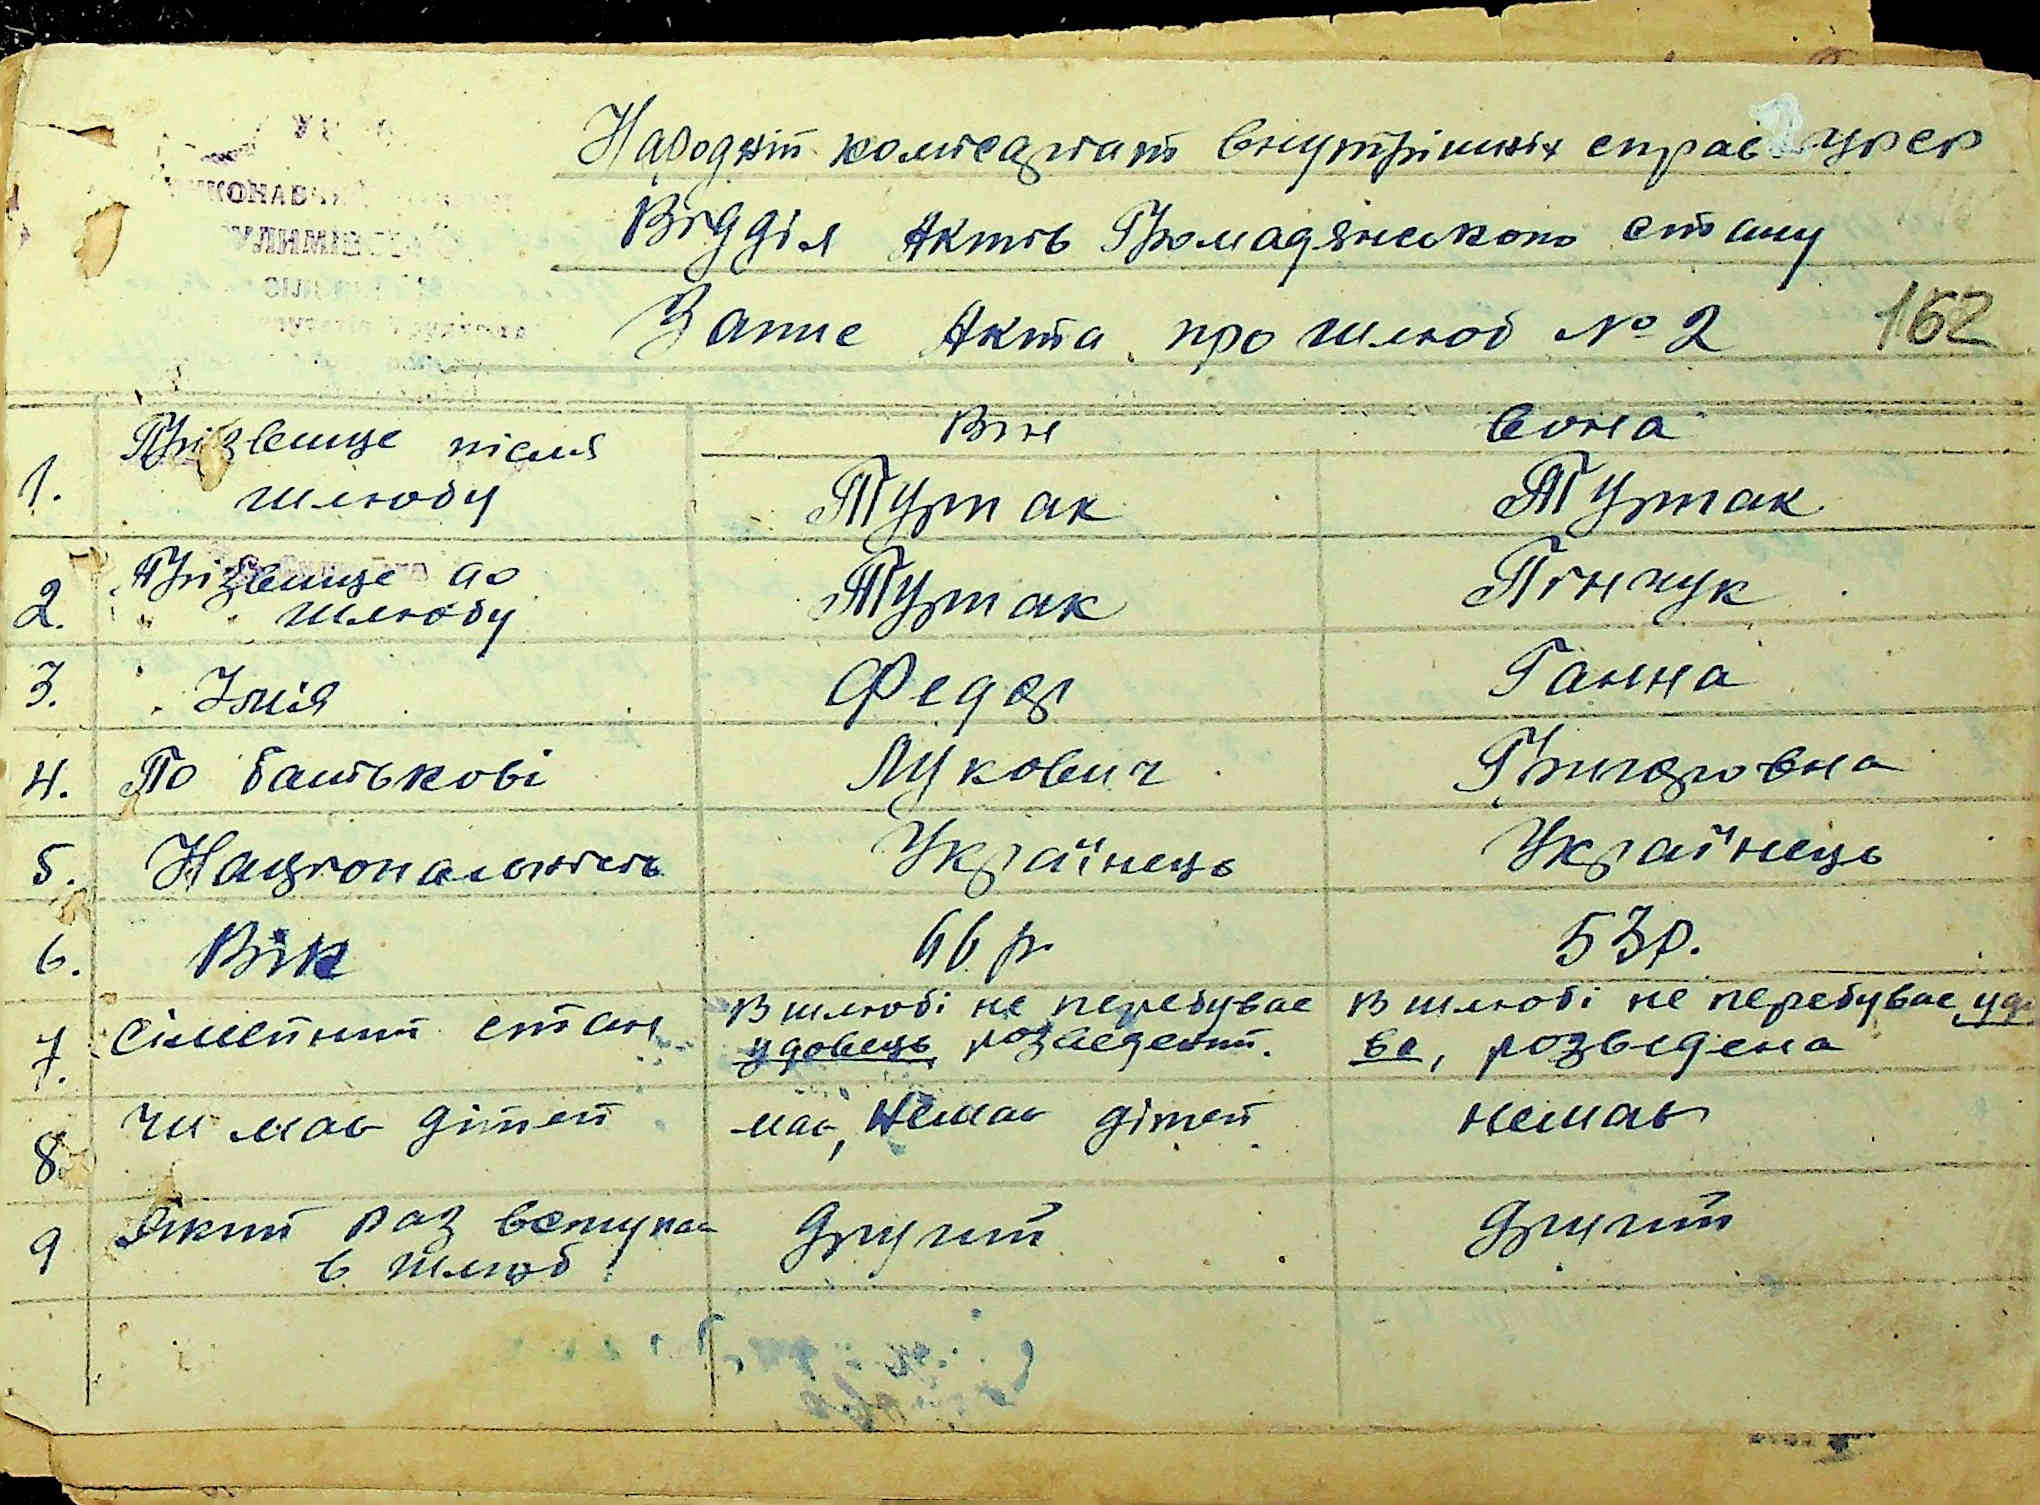 Народній комісаріат внутрішніх справ УРСР
Відділ Актів Громадянського стану
Запис Акта про шлюб № 2
162
Він Вона
1. Прізвище після шлюбу Турпак Турпак
2. Прізвище до шлюбу Турпак Пінчук
3. Імія Федор Ганна
4. По батькові Лукович Григоровна
5. Національність Українець Українець
6. Вік 66 р. 53 р.
7. Сімейний стан В шлюбі не перебуває В шлюбі не перебуває, удо
удовець, розведений. ва, розведена
8. Чи має дітей має, немає дітей немає
9 Який раз вступає Другий Другий
в шлюб